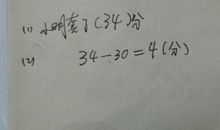 (1) 小明套了(34)分
(2) 34-30=4(分)